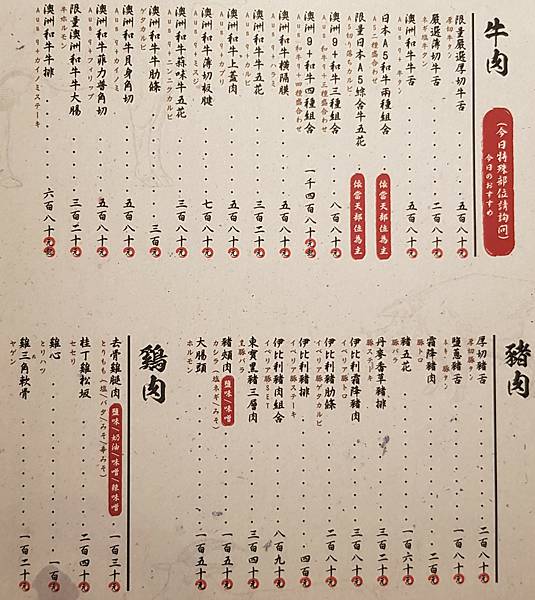 牛肉
(今日特殊部位請詢問)
今日のおすすめ
限量嚴選厚切牛舌 五百八十元
厚切牛タン
嚴選薄切牛舌 二百八十元
ネギ塩牛タン
澳洲和牛牛舌 五百八十元
Ausタレ牛タン
日本A5和牛兩種組合 依當天部位為主
A5二種盛合わせ
限量日本A5綜合牛五花 依當天部位為主
澳洲9+和牛三種組合 八百八十元
Aus和牛9+三種盛合わせ
澳洲9+和牛四種組合 一千四百八十元起
Aus和牛9+四種盛合わせ
澳洲和牛橫隔膜 八百八十元
澳洲和牛牛五花 三百二十元
澳洲和牛上蓋肉 五百八十元
澳洲和牛薄切板腱 七百八十元
澳洲和牛蒜味牛五花 三百八十元
澳洲和牛牛肋條 三百元
ゲタカルビ
澳洲和牛貝身角切 五百八十元
澳洲和牛菲力普角切 五百八十元
限量澳洲和牛牛大腸 三百二十元
牛ホルモン
澳洲和牛牛排 六百八十元起
豬肉
厚切豬舌 二百八十元
厚切豚タン
鹽蔥豬舌 一百八十元
ネギ豚タン
霜降豬肉 二百元
豚トロ
豬五花 一百六十元
豚バラ
丹麥香草豬排 三百二十元
豚ステーキ
伊比利霜降豬肉 三百八十元
イベリア豚トロ
伊比利豬肋條 二百八十元
イベリア豚ゲタカルビ
伊比利豬排 四百元
イベリア豚ステーキ
伊比利豬肉組合 八百九十元
東寶黑豬三層肉 三百四十元
黒豚バラ
豬頰肉 鹽味/味噌 一百五十元
カシラ(塩ネギ/みそ)
大腸頭 一百五十元
ホルモン
鷄肉
去骨雞腿肉 鹽味/奶油/味噌/辣味噌 一百三十元
とりもも(塩/バタ/みそ/辛みそ)
桂丁雞松坂 二百四十元
セセリ
雞心 一百元
とりハツ
雞三角軟骨 一百二十元
ヤゲン